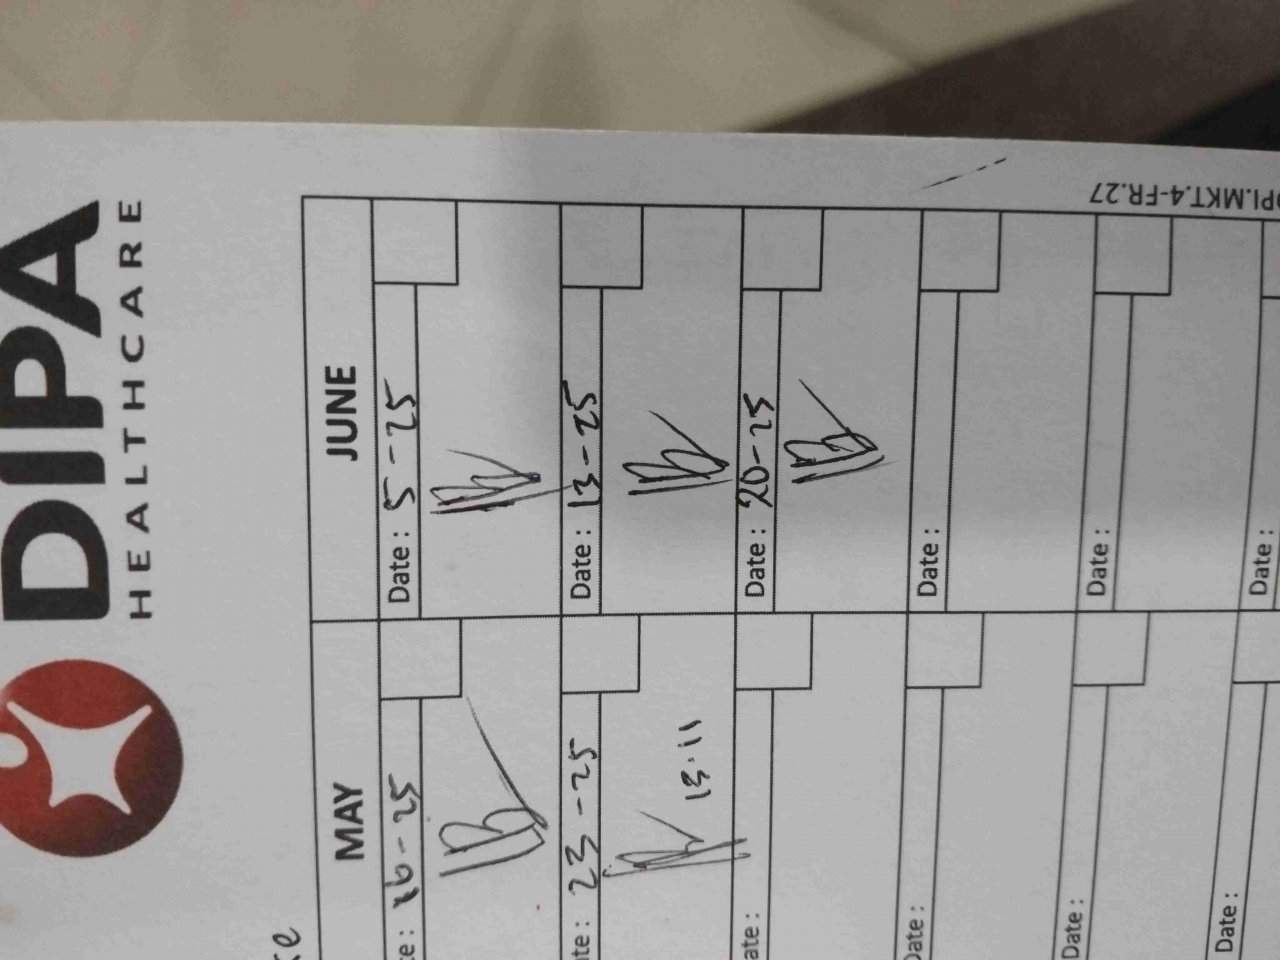 DIPA
HEALTHCARE
MAY JUNE
te : 16-25 Date : 5-25
ate : 23-25 Date : 13-25
13.11
ate : Date : 20-25
Date : Date :
Date : Date :
Date : Date :
DPI.MKT.4-FR.27